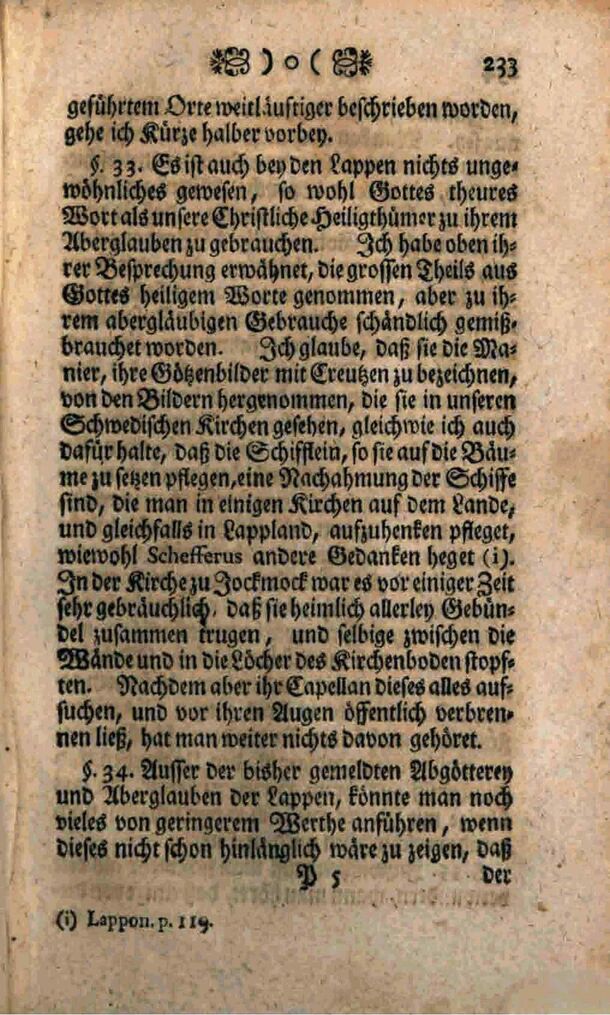 ) o ( 233
geführtem Orte weitläuftiger beschrieben worden,
gehe ich Kürze halber vorbey.
§. 33. Es ist auch bey den Lappen nichts unge-
wöhnliches gewesen, so wohl Gottes theures
Wort als unsere Christliche Heiligthümer zu ihrem
Aberglauben zu gebrauchen. Ich habe oben ih-
rer Besprechung erwähnet, die grossen Theils aus
Gottes heiligem Worte genommen, aber zu ih-
rem abergläubigen Gebrauche schändlich gemiß-
brauchet worden. Ich glaube, daß sie die Ma-
nier, ihre Götzenbilder mit Creutzen zu bezeichnen,
von den Bildern hergenommen, die sie in unseren
Schwedischen Kirchen gesehen, gleichwie ich auch
dafür halte, daß die Schifflein, so sie auf die Bäu-
me zu setzen pflegen, eine Nachahmung der Schiffe
sind, die man in einigen Kirchen auf dem Lande,
und gleichfalls in Lappland, aufzuhenken pfleget,
wiewohl Schefferus andere Gedanken heget (i).
In der Kirche zu Jockmock war es vor einiger Zeit
sehr gebräuchlich, daß sie heimlich allerley Gebün-
del zusammen trugen, und selbige zwischen die
Wände und in die Löcher des Kirchenboden stopf-
ten. Nachdem aber ihr Capellan dieses alles auf-
suchen, und vor ihren Augen öffentlich verbren-
nen ließ, hat man weiter nichts davon gehöret.
§. 34. Ausser der bisher gemeldten Abgötterey
und Aberglauben der Lappen, könnte man noch
vieles von geringerem Werthe anführen, wenn
dieses nicht schon hinlänglich wäre zu zeigen, daß
P 5 der
(i) Lappon. p. 119.